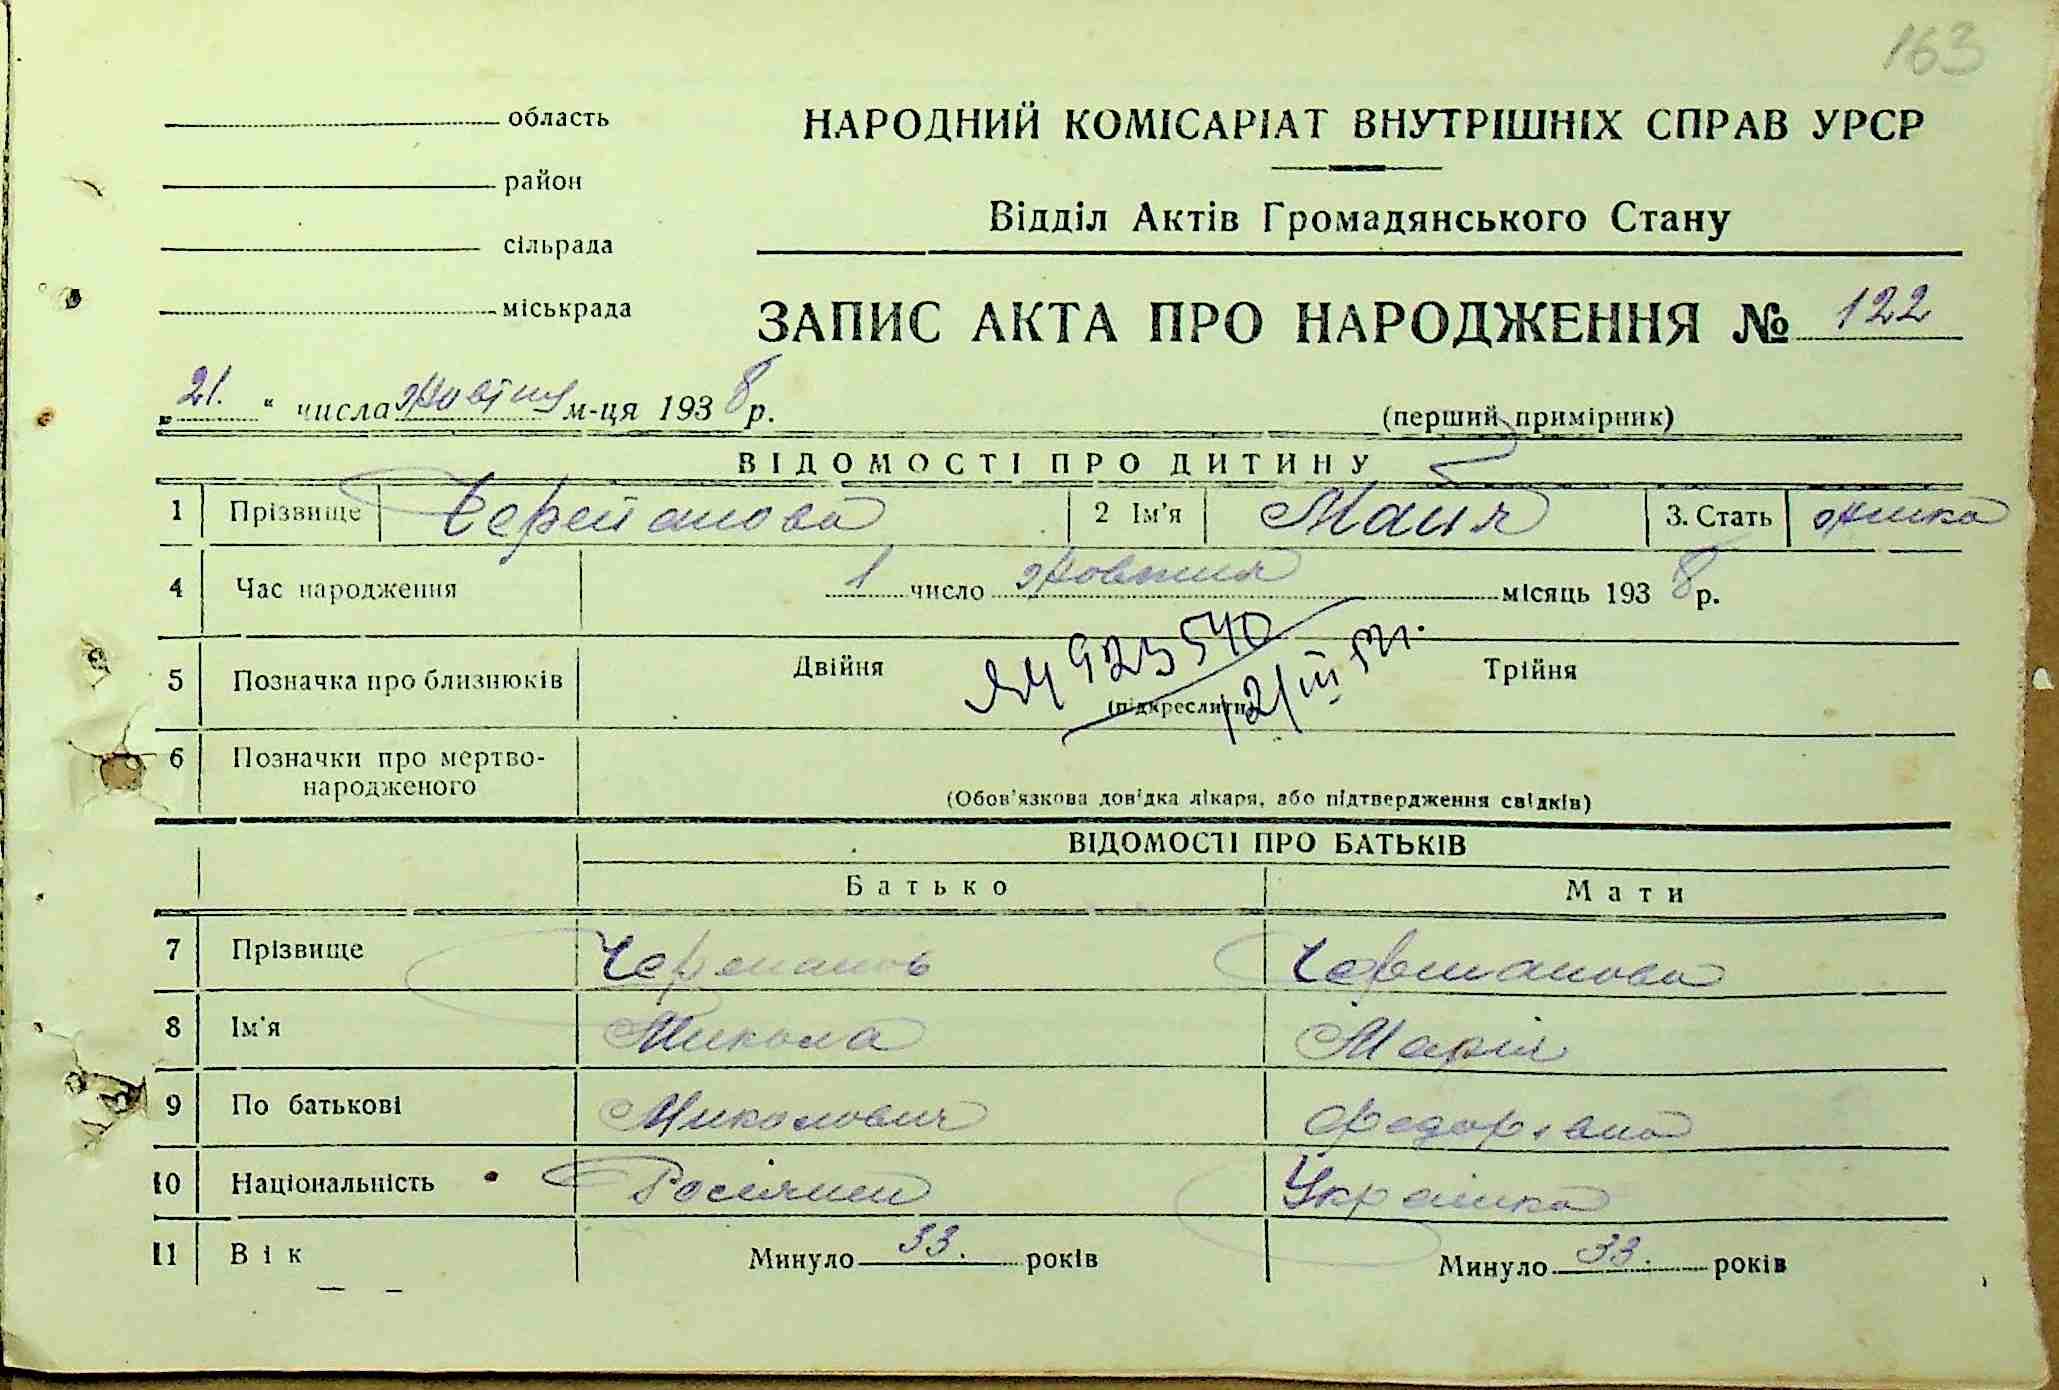 163
область
район
сільрада
міськрада
НАРОДНИЙ КОМІСАРІАТ ВНУТРІШНІХ СПРАВ УРСР
Відділ Актів Громадянського Стану
ЗАПИС АКТА ПРО НАРОДЖЕННЯ № 122
„21." числа Жовтня м-ця 1938 р.
(перший примірник)
ВІДОМОСТІ ПРО ДИТИНУ
1 Прізвище Черепанова 2 Ім'я Майя 3. Стать жінка
4 Час народження 1 число Жовтня місяць 1938 р.
5 Позначка про близнюків Двійня (підкреслити) Трійня
ЯЧ 923540
12/III 52г.
6 Позначки про мертво-
народженого
(Обов'язкова довідка лікаря, або підтвердження свідків)
ВІДОМОСТІ ПРО БАТЬКІВ
Батько Мати
7 Прізвище Черепанов Черепанова
8 Ім'я Микола Марія
9 По батькові Миколович Федорівна
10 Національність Росіянин Українка
11 Вік Минуло 33. років Минуло 33. років